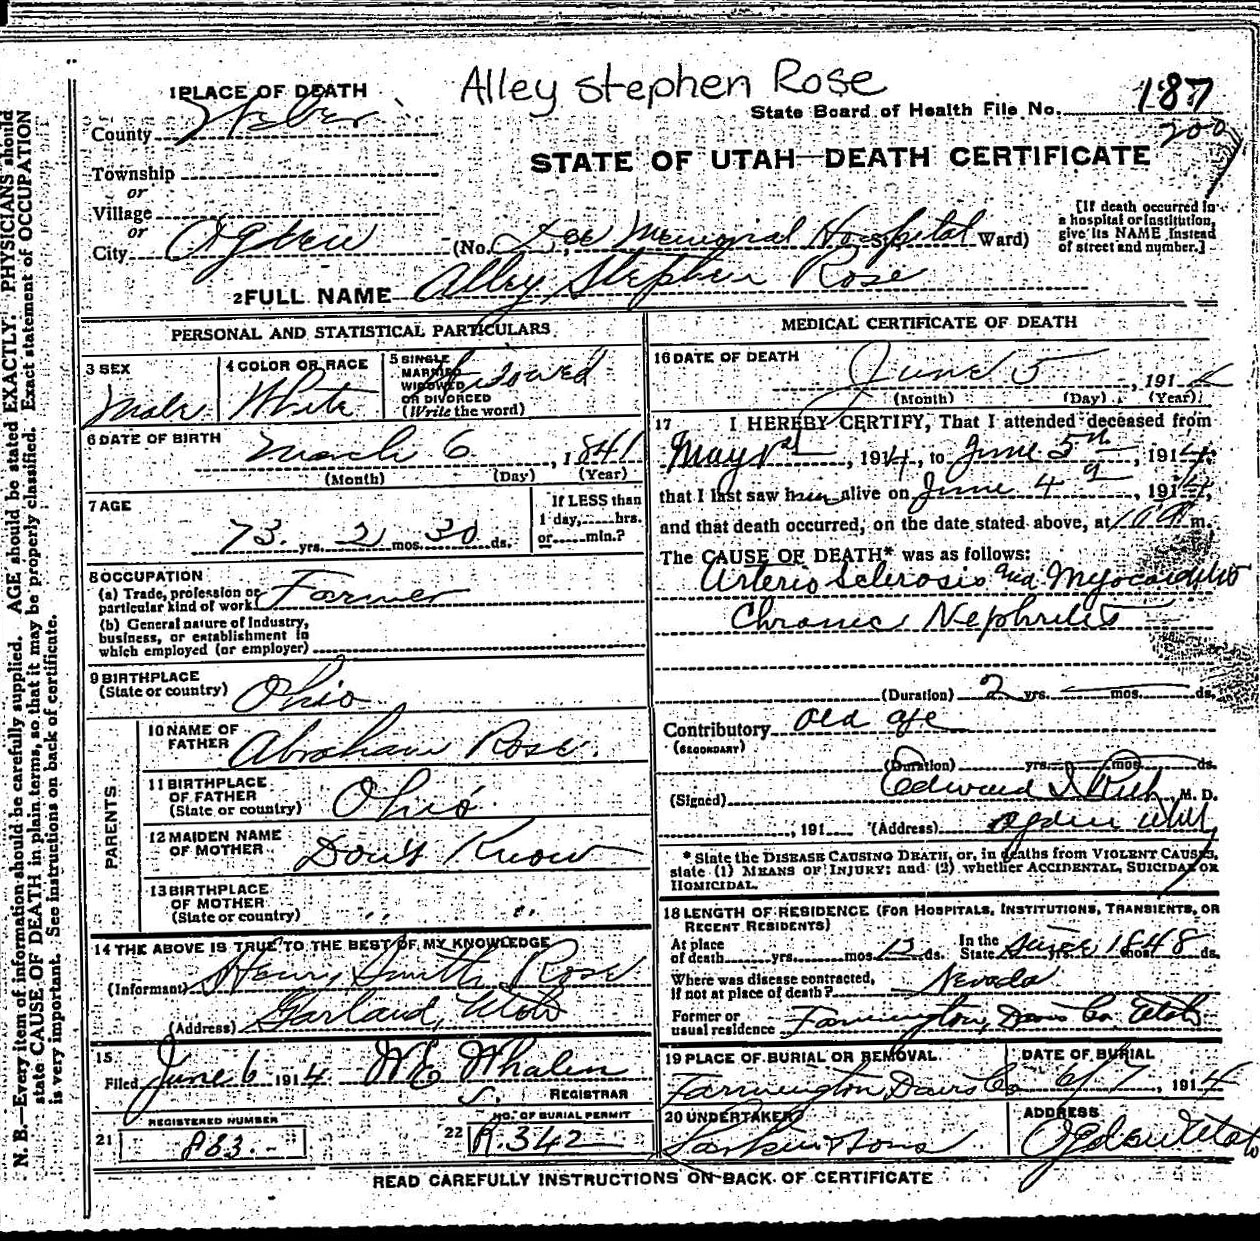 Alley Stephen Rose
1 PLACE OF DEATH
State Board of Health File No. 187
200
County Weber
STATE OF UTAH—DEATH CERTIFICATE
Township
or
Village
or
City Ogden (No. Dee Memorial Hospital St. Ward)
[If death occurred in
a hospital or institution,
give its NAME instead
of street and number.]
2 FULL NAME Alley Stephen Rose
PERSONAL AND STATISTICAL PARTICULARS
3 SEX
Male
4 COLOR OR RACE
White
5 SINGLE
MARRIED
WIDOWED
OR DIVORCED
(Write the word)
Widowed
6 DATE OF BIRTH
March 6, 1841
(Month) (Day) (Year)
7 AGE
73 yrs. 2 mos. 30 ds.
If LESS than
1 day,......hrs.
or......min.?
8 OCCUPATION
(a) Trade, profession or
particular kind of work Farmer
(b) General nature of Industry,
business, or establishment in
which employed (or employer)
9 BIRTHPLACE
(State or country) Ohio
PARENTS
10 NAME OF
FATHER Abraham Rose.
11 BIRTHPLACE
OF FATHER
(State or country) Ohio
12 MAIDEN NAME
OF MOTHER Don't Know
13 BIRTHPLACE
OF MOTHER
(State or country) " "
14 THE ABOVE IS TRUE TO THE BEST OF MY KNOWLEDGE
(Informant) Henry Smith Rose
(Address) Garland, Utah
15
Filed June 6 1914 W E Whalen
REGISTRAR
REGISTERED NUMBER
21 883.-
NO. OF BURIAL PERMIT
22 R.342
MEDICAL CERTIFICATE OF DEATH
16 DATE OF DEATH
June 5, 1914
(Month) (Day) (Year)
17 I HEREBY CERTIFY, That I attended deceased from
May, 1914, to June 5th, 1914,
that I last saw him alive on June 4, 1914,
and that death occurred, on the date stated above, at m.
The CAUSE OF DEATH* was as follows:
Arterio Sclerosis and Myocarditis
Chronic Nephritis
(Duration) 2 yrs. mos. ds.
Contributory old age
(SECONDARY)
(Duration) yrs. mos. ds.
(Signed) Edward I Rich M. D.
, 191 (Address) Ogden Utah
* State the DISEASE CAUSING DEATH, or, in deaths from VIOLENT CAUSES,
state (1) MEANS OF INJURY; and (2) whether ACCIDENTAL, SUICIDAL OR
HOMICIDAL.
18 LENGTH OF RESIDENCE (FOR HOSPITALS, INSTITUTIONS, TRANSIENTS, OR
RECENT RESIDENTS)
At place
of death yrs. mos. 12 ds. In the
State since 1848 yrs. mos. ds.
Where was disease contracted,
if not at place of death? Nevada
Former or
usual residence Farmington, Davis Co. Utah
19 PLACE OF BURIAL OR REMOVAL
Farmington, Davis Co
DATE OF BURIAL
6/7, 1914
20 UNDERTAKER
Larkin & Sons
ADDRESS
Ogden Utah
READ CAREFULLY INSTRUCTIONS ON BACK OF CERTIFICATE
N. B.—Every item of information should be carefully supplied. AGE should be stated EXACTLY. PHYSICIANS should
state CAUSE OF DEATH in plain terms, so that it may be properly classified. Exact statement of OCCUPATION
is very important. See instructions on back of certificate.